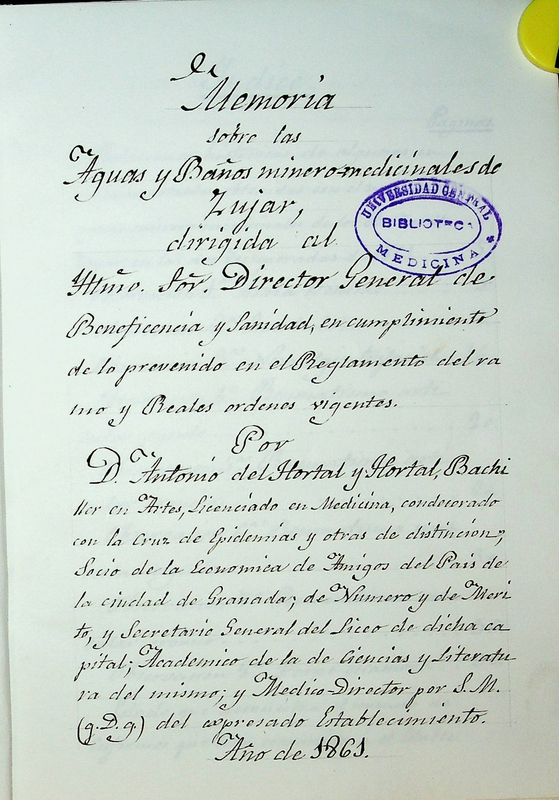 Memoria
sobre las
Aguas y Baños minero=medicinales de
Zujar,
dirigida al
Yltmo. Sor. Director General de
Beneficencia y Sanidad, en cumplimiento
de lo prevenido en el Reglamento del ra
mo y Reales ordenes vigentes.
Por
D. Antonio del Hortal y Hortal, Bachi
ller en Artes, Licenciado en Medicina, condecorado
con la Cruz de Epidemias y otras de distincion;
Socio de la Economica de Amigos del Pais de
la ciudad de Granada; de Numero y de Meri
to, y Secretario General del Liceo de dicha ca
pital; Academico de la de Ciencias y Literatu
ra del mismo; y Medico-Director por S. M.
(q. D. g.) del expresado Establecimiento.
Año de 1861.
UNIVERSIDAD CENTRAL
BIBLIOTECA
MEDICINA